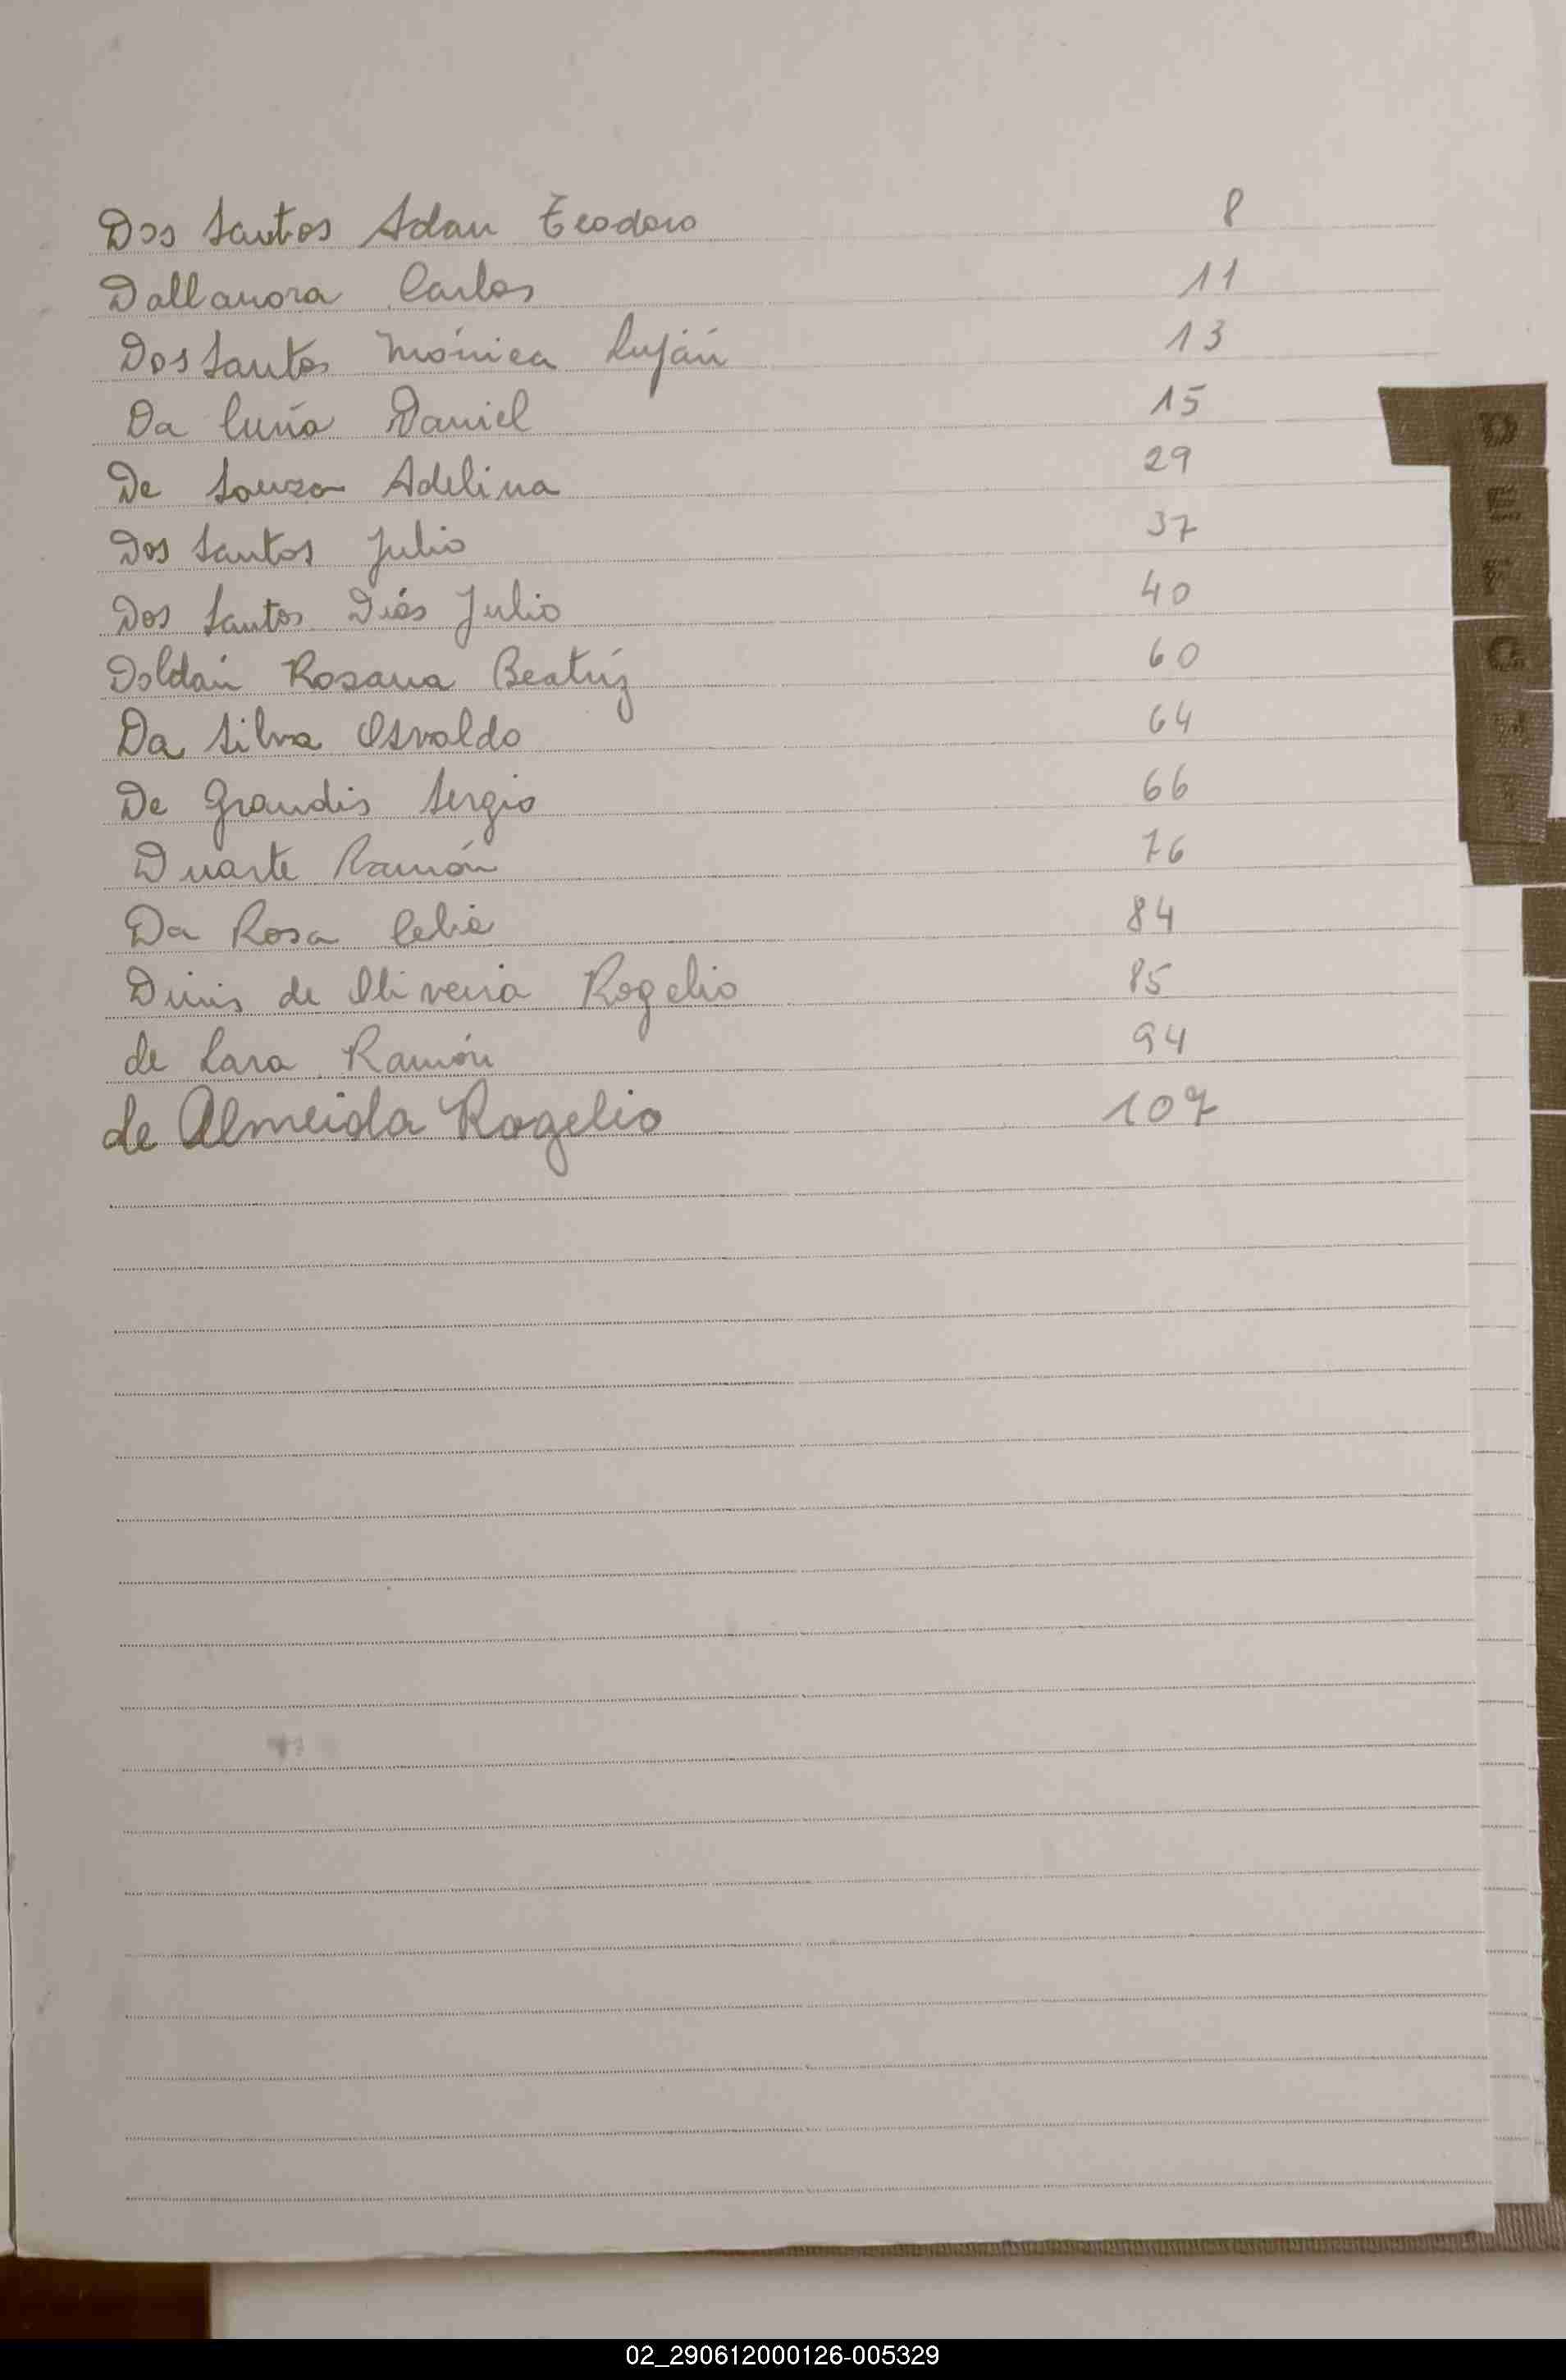 Dos Santos Adan Teodoro 8
Dallanora Carlos 11
Dos Santos Mónica Luján 13
Da Cuña Daniel 15
De Souza Adelina 29
Dos Santos Julio 37
Dos Santos Diás Julio 40
Doldán Rosana Beatríz 60
Da Silva Osvaldo 64
De Grandis Sergio 66
Duarte Ramón 76
Da Rosa Celia 84
Dinis de Oliveira Rogelio 85
de Lara Ramón 94
de Almeida Rogelio 107
D
E
F
G
02_290612000126-005329